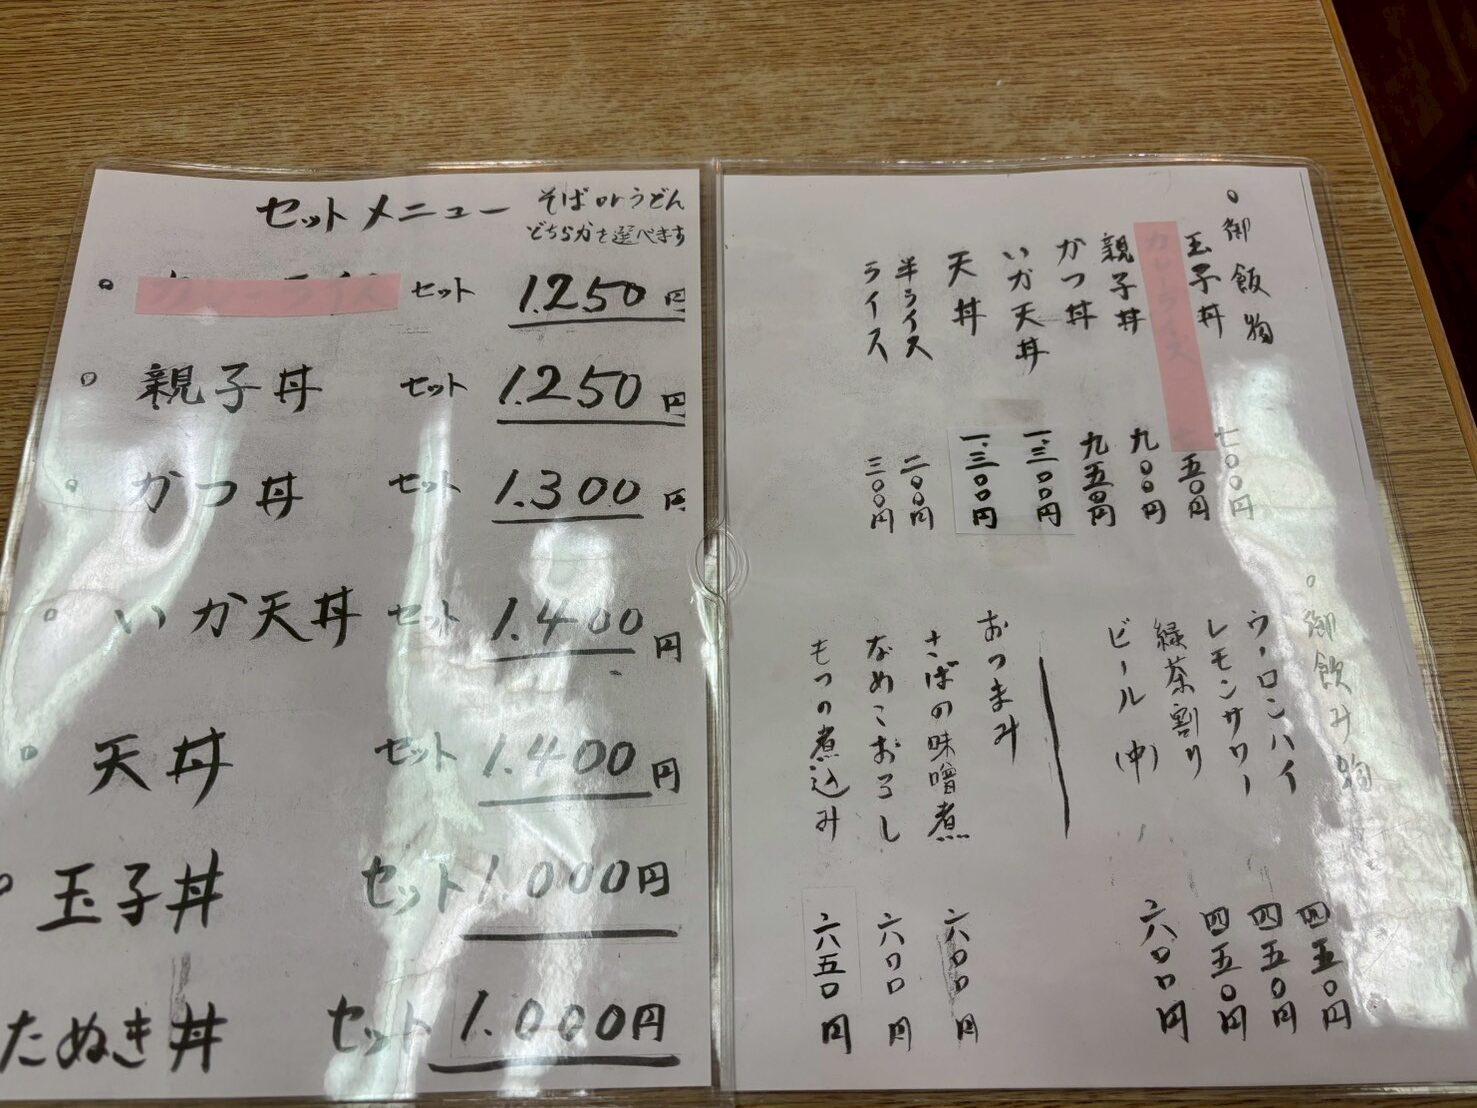 セットメニュー
そば or うどん
どちらかを選べます
。カレーライス セット 1.250円
。親子丼 セット 1.250円
。かつ丼 セット 1.300円
。いか天丼 セット 1.400円
。天丼 セット 1.400円
。玉子丼 セット 1.000円
たぬき丼 セット 1.000円
。御飯物
玉子丼 七〇〇円
カレーライス 七五〇円
親子丼 九〇〇円
かつ丼 九五〇円
いか天丼 一.三〇〇円
天丼 一.三〇〇円
半ライス 二〇〇円
ライス 三〇〇円
。御飲み物
ウーロンハイ 四五〇円
レモンサワー 四五〇円
緑茶割り 四五〇円
ビール(中) 六〇〇円
おつまみ
さばの味噌煮 六〇〇円
なめこおろし 六〇〇円
もつの煮込み 六五〇円